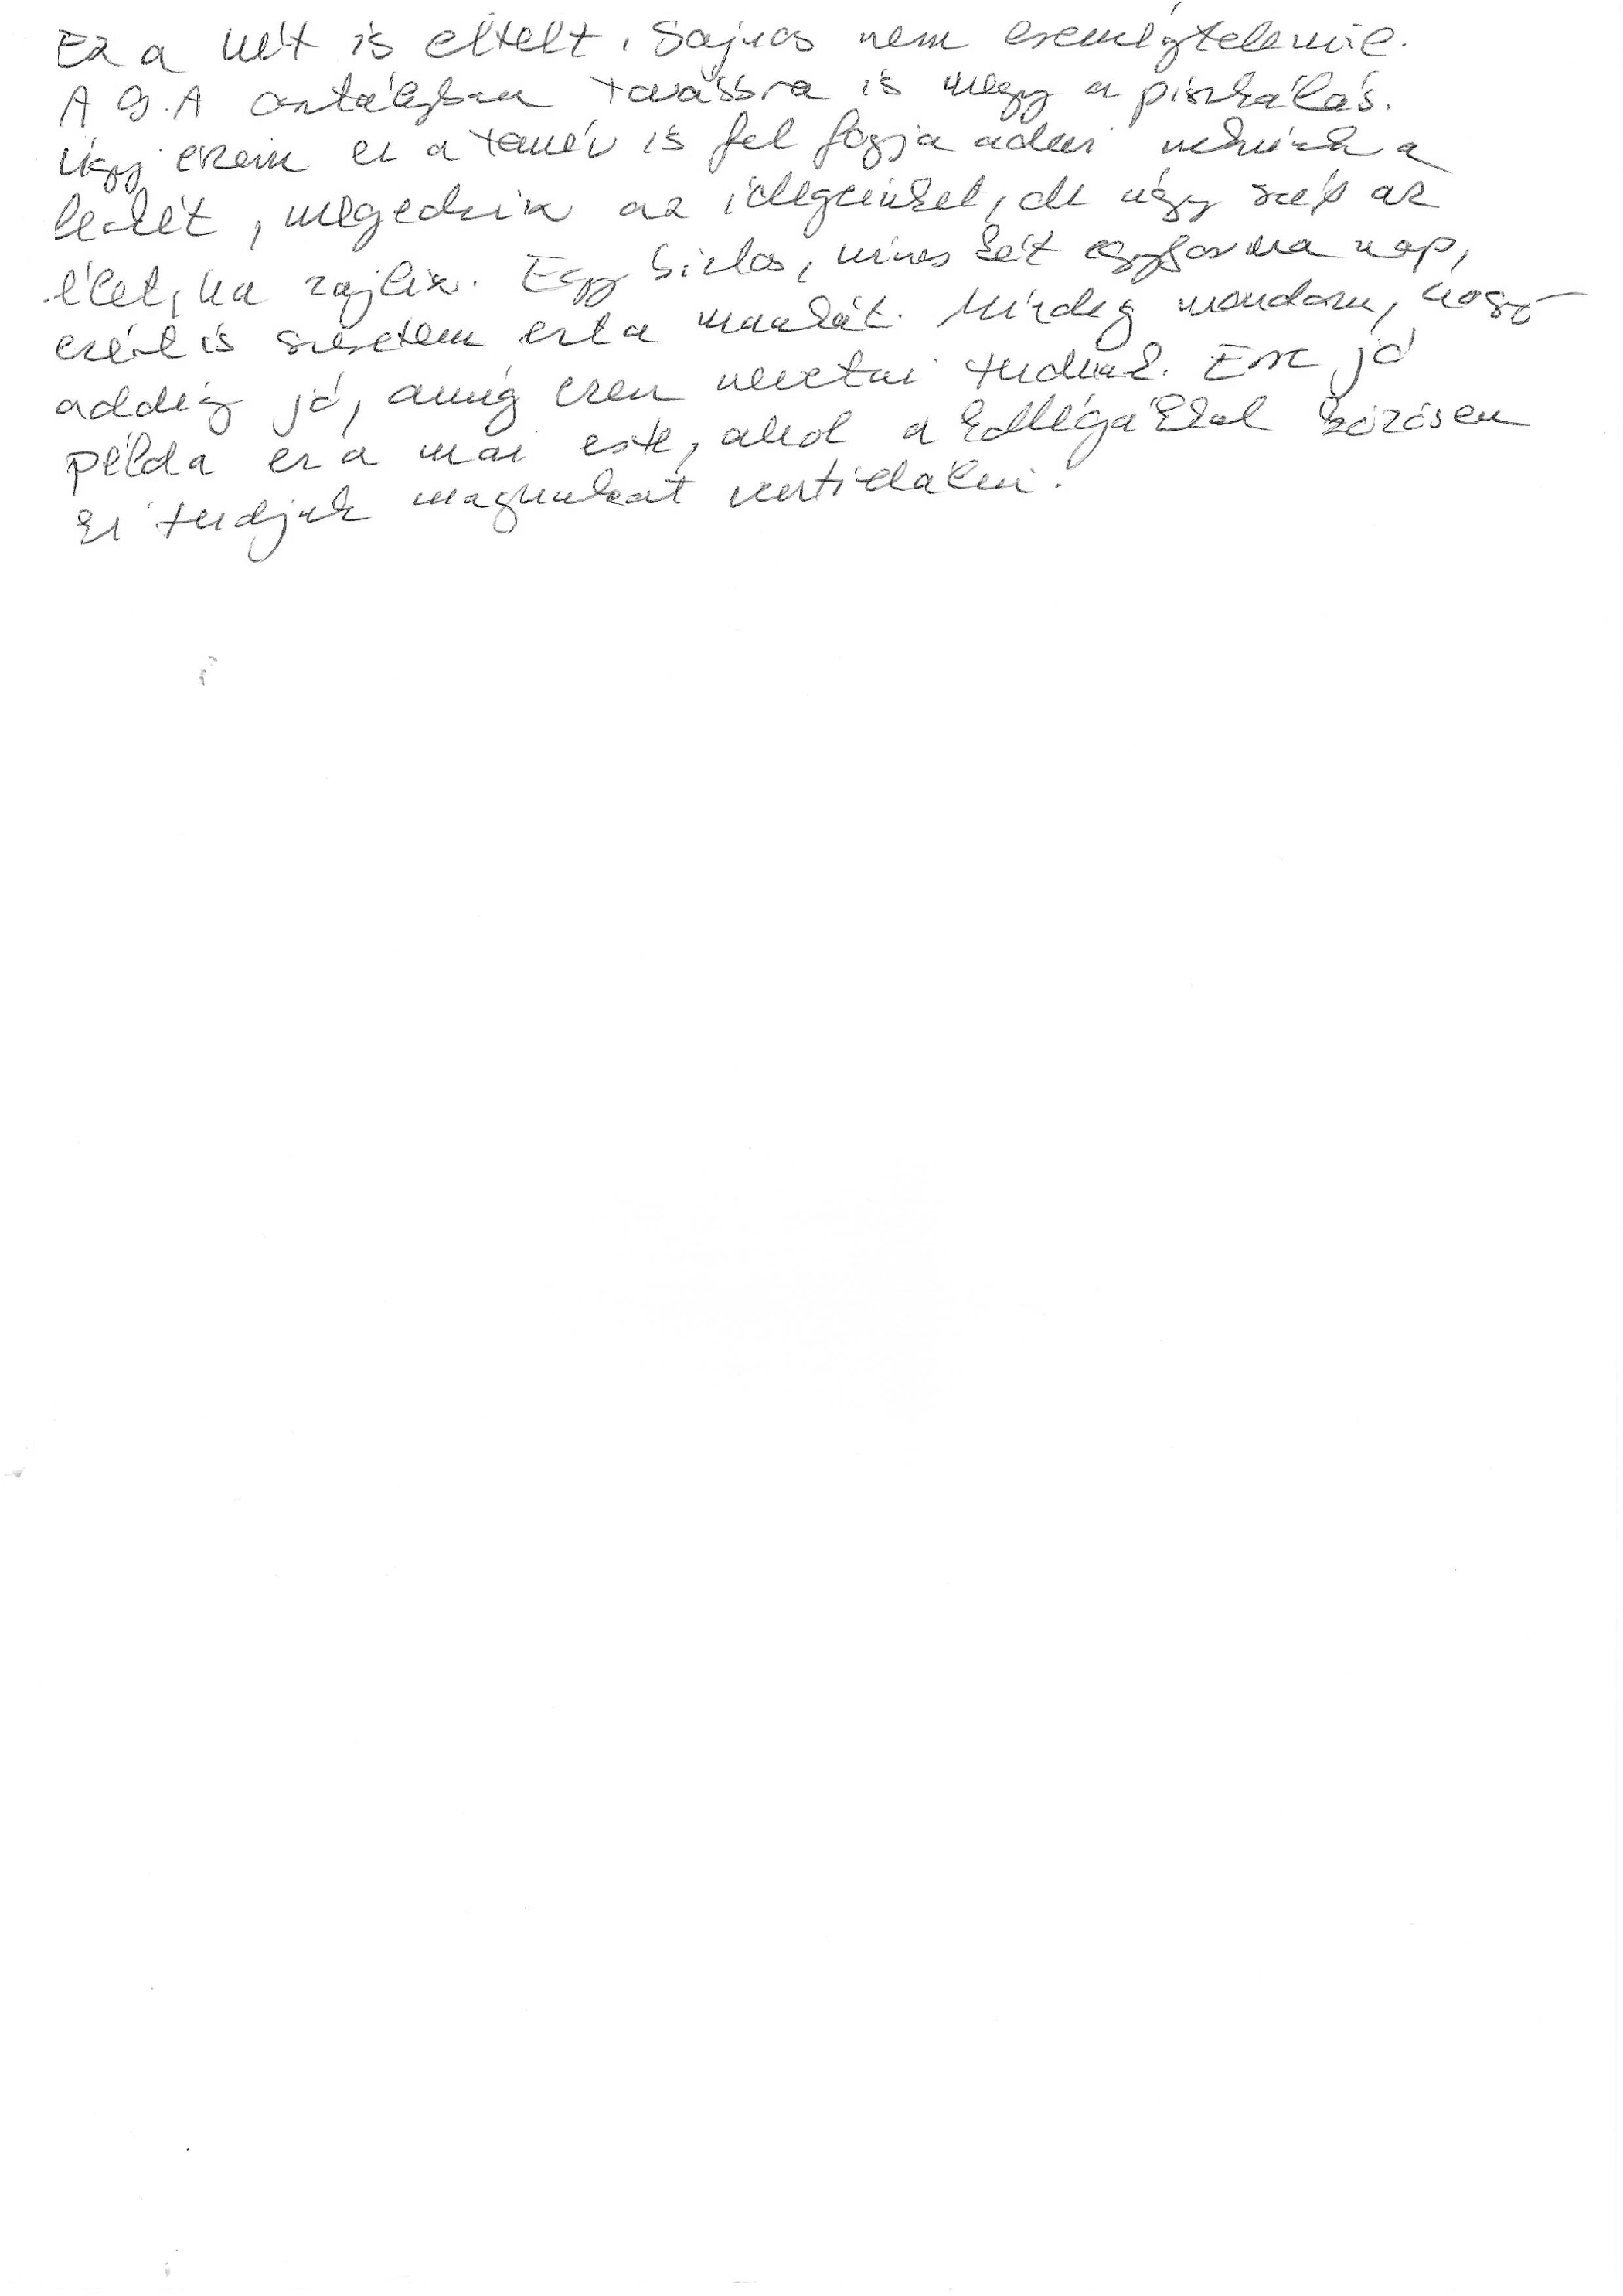 Ez a hét is eltelt. Sajnos nem eseménytelenül.
A 9. A osztályban továbbra is megy a piszkálás.
Úgy érzem ez a tanév is fel fogja adni nekünk a
leckét, megedzik az idegeinket, de úgy szép az
élet, ha zajlik. Egy biztos, nincs két egyforma nap,
ezért is szeretem ezt a munkát. Mindig mondom, hogy
addig jó, amíg ezen nevetni tudunk. Erre jó
példa ez a mai este, ahol a kollégákkal közösen
ki tudjuk magunkat ventilálni.